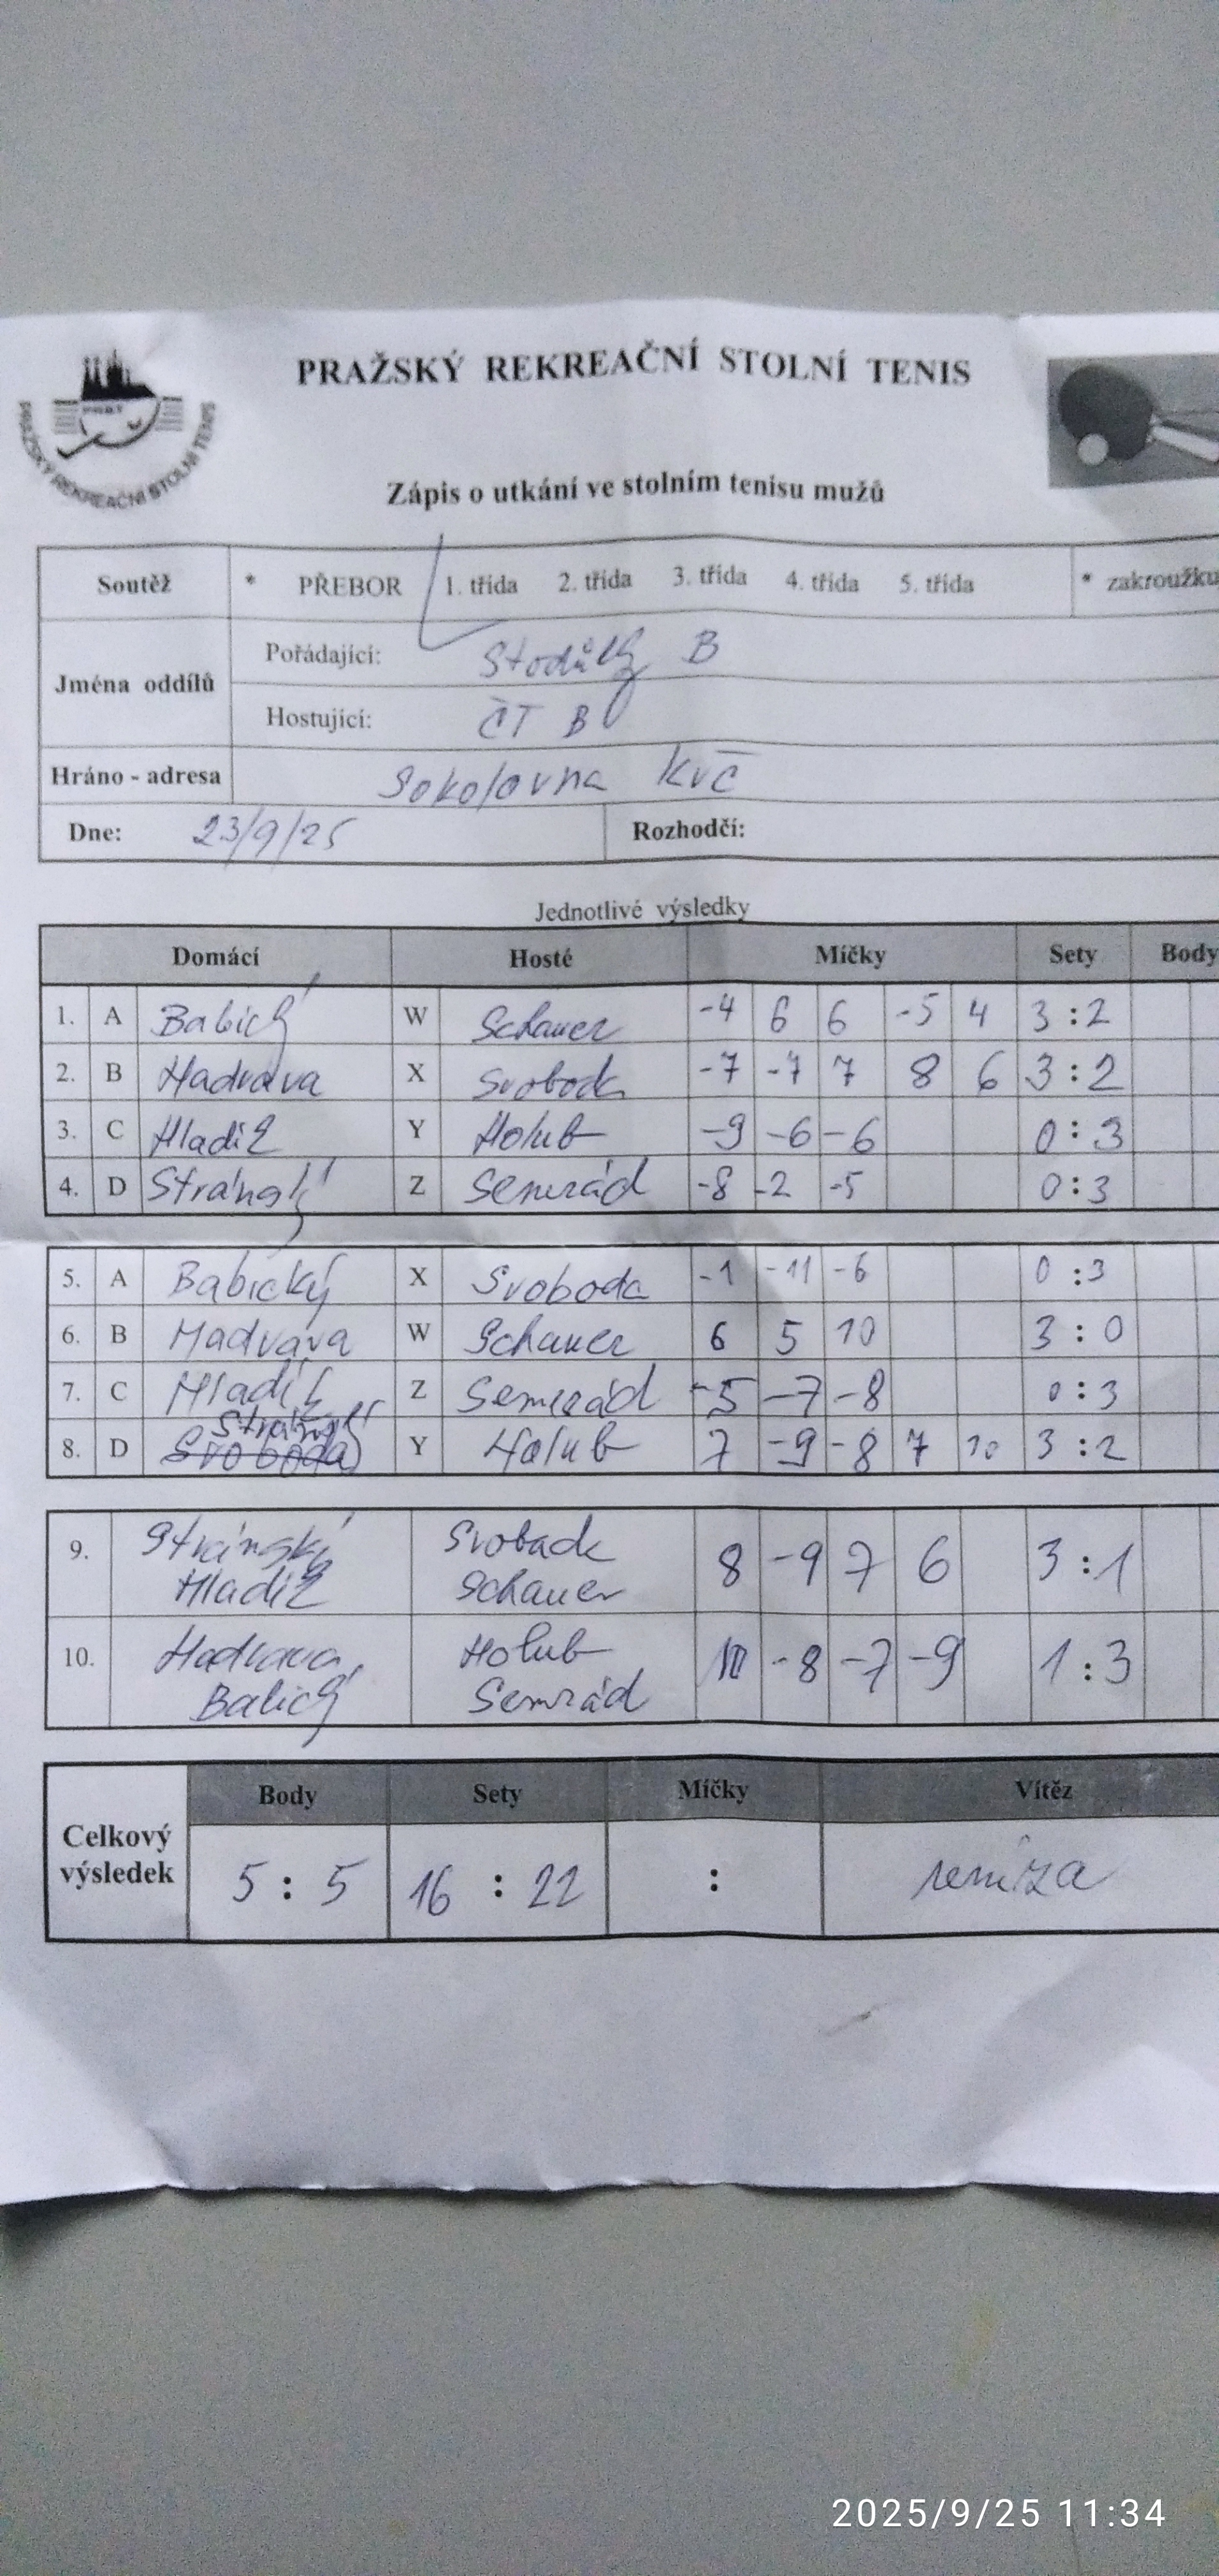 PRAŽSKÝ REKREAČNÍ STOLNÍ TENIS
PRAŽSKÝ REKREAČNÍ STOLNÍ TENIS
Zápis o utkání ve stolním tenisu mužů
Soutěž * PŘEBOR 1. třída 2. třída 3. třída 4. třída 5. třída * zakroužku
Jména oddílů
Pořádající: Stodůlky B
Hostující: ČT B
Hráno - adresa Sokolovna KVČ
Dne: 23/9/25 Rozhodčí:
Jednotlivé výsledky
Domácí Hosté Míčky Sety Body
1. A Babický W Schauer -4 6 6 -5 4 3 : 2
2. B Hadvava X Svoboda -7 -7 7 8 6 3 : 2
3. C Hladíž Y Holub -9 -6 -6 0 : 3
4. D Stránský Z Semrád -8 -2 -5 0 : 3
5. A Babický X Svoboda -1 -11 -6 0 : 3
6. B Hadvava W Schauer 6 5 10 3 : 0
7. C Hladíž Z Semerád -5 -7 -8 0 : 3
Stránský
8. D Svoboda Y Holub 7 -9 -8 7 10 3 : 2
9. Stránský Svoboda 8 -9 7 6 3 : 1
Hladíž Schauer
10. Hadvava Holub 10 -8 -7 -9 1 : 3
Babický Semrád
Body Sety Míčky Vítěz
Celkový výsledek 5 : 5 16 : 22 : remíza
2025/9/25 11:34